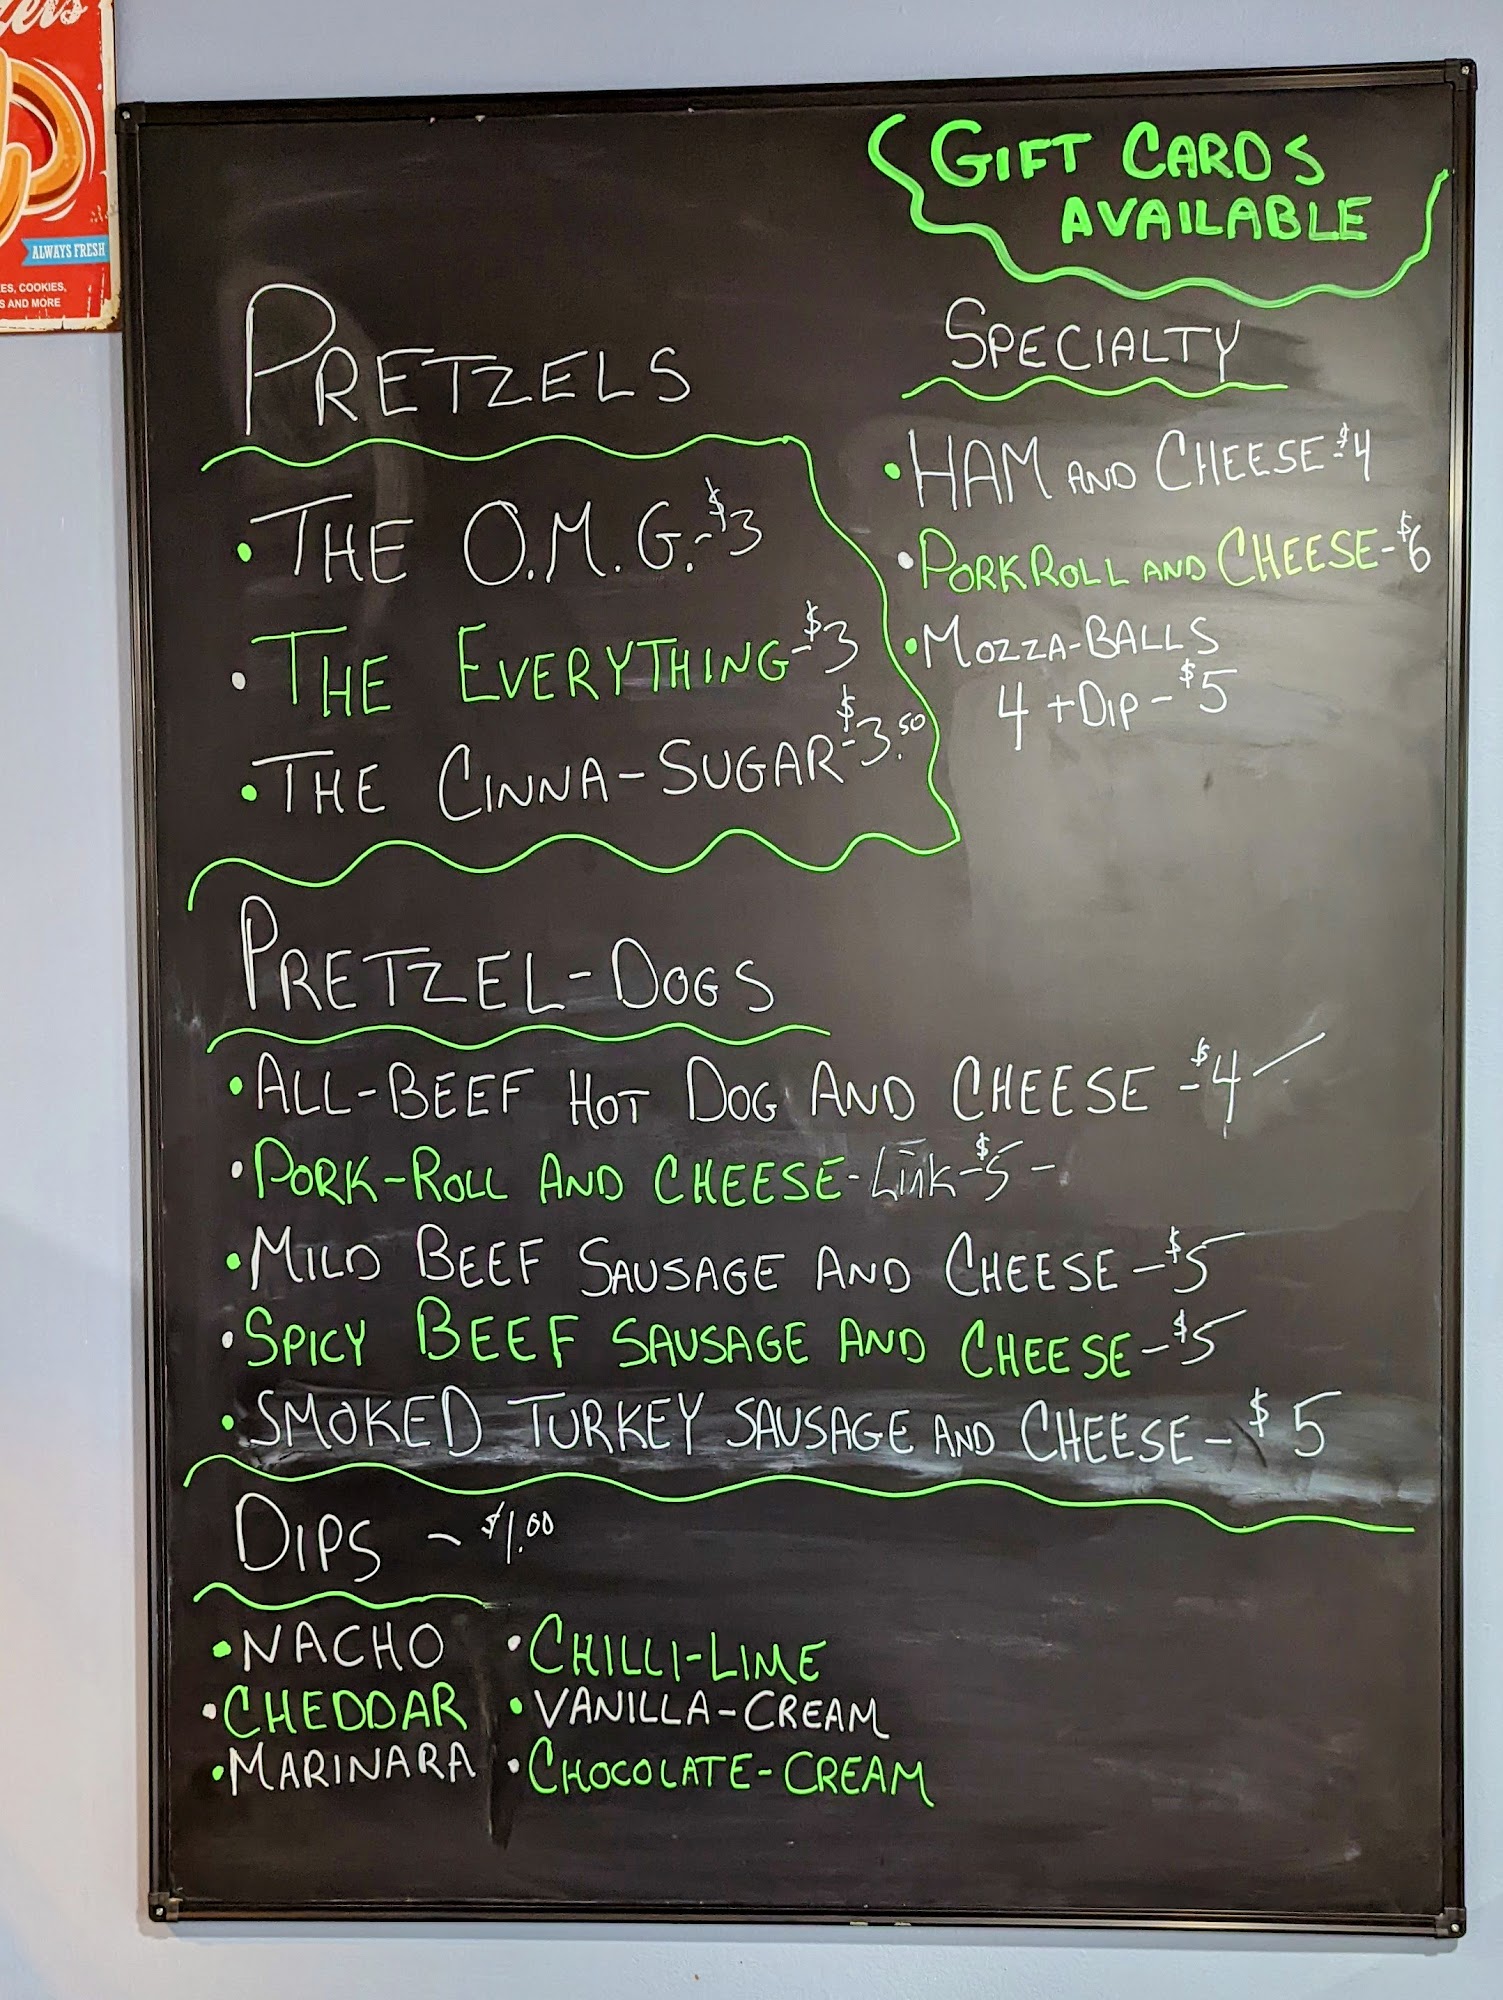 ALWAYS FRESH
COOKIES,
AND MORE
GIFT CARDS
AVAILABLE
PRETZELS
• THE O.M.G.-$3
• THE EVERYTHING-$3
• THE CINNA-SUGAR-$3.50
SPECIALTY
• HAM AND CHEESE-$4
• PORKROLL AND CHEESE-$6
• MOZZA-BALLS
4 + DIP-$5
PRETZEL-DOGS
• ALL-BEEF HOT DOG AND CHEESE-$4
• PORK-ROLL AND CHEESE-Link-$5-
• MILD BEEF SAUSAGE AND CHEESE-$5
• SPICY BEEF SAUSAGE AND CHEESE-$5
• SMOKED TURKEY SAUSAGE AND CHEESE-$5
DIPS - $1.00
• NACHO
• CHEDDAR
• MARINARA
• CHILLI-LIME
• VANILLA-CREAM
• CHOCOLATE-CREAM